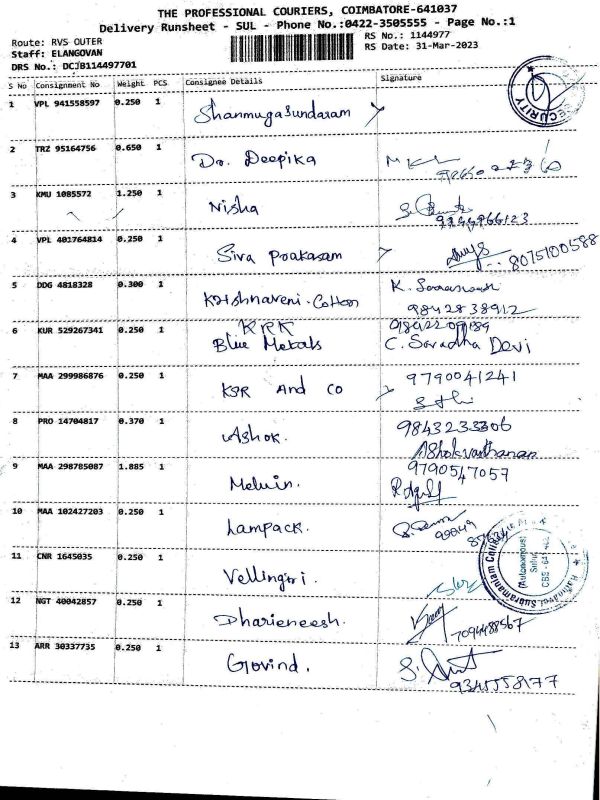 THE PROFESSIONAL COURIERS, COIMBATORE-641037
Delivery Runsheet - SUL - Phone No.:0422-3505555 - Page No.:1
Route: RVS OUTER
RS No.: 1144977
Staff: ELANGOVAN
RS Date: 31-Mar-2023
DRS No.: DCJB114497701
S No Consignment No Weight PCS Consignee Details Signature
1 VPL 941558597 0.250 1 Shanmugasundaram
SECURITY
2 TRZ 95164756 0.650 1 Dr. Deepika
3 KMU 1085572 1.250 1 Nisha
4 VPL 401764814 0.250 1 Siva Prakasam
8075100588
5 DDG 4818328 0.300 1 Krishnaveni. Cotton K.
9842838912
6 KUR 529267341 0.250 1 KRK
Blue Metals C. Saradha Devi
7 MAA 299986876 0.250 1 KSR And CO 9790041241
8 PRO 14704817 0.370 1 Ashok. 9843233306
9 MAA 298785087 1.885 1 Melvin. 9790547057
10 MAA 102427203 0.250 1 Lampack.
11 CNR 1645035 0.250 1 Vellingiri.
(Autonomous)
Sulur
12 NGT 40042857 0.250 1 Dharieneesh.
7094488567
13 ARR 30337735 0.250 1 Govind.
9345558177